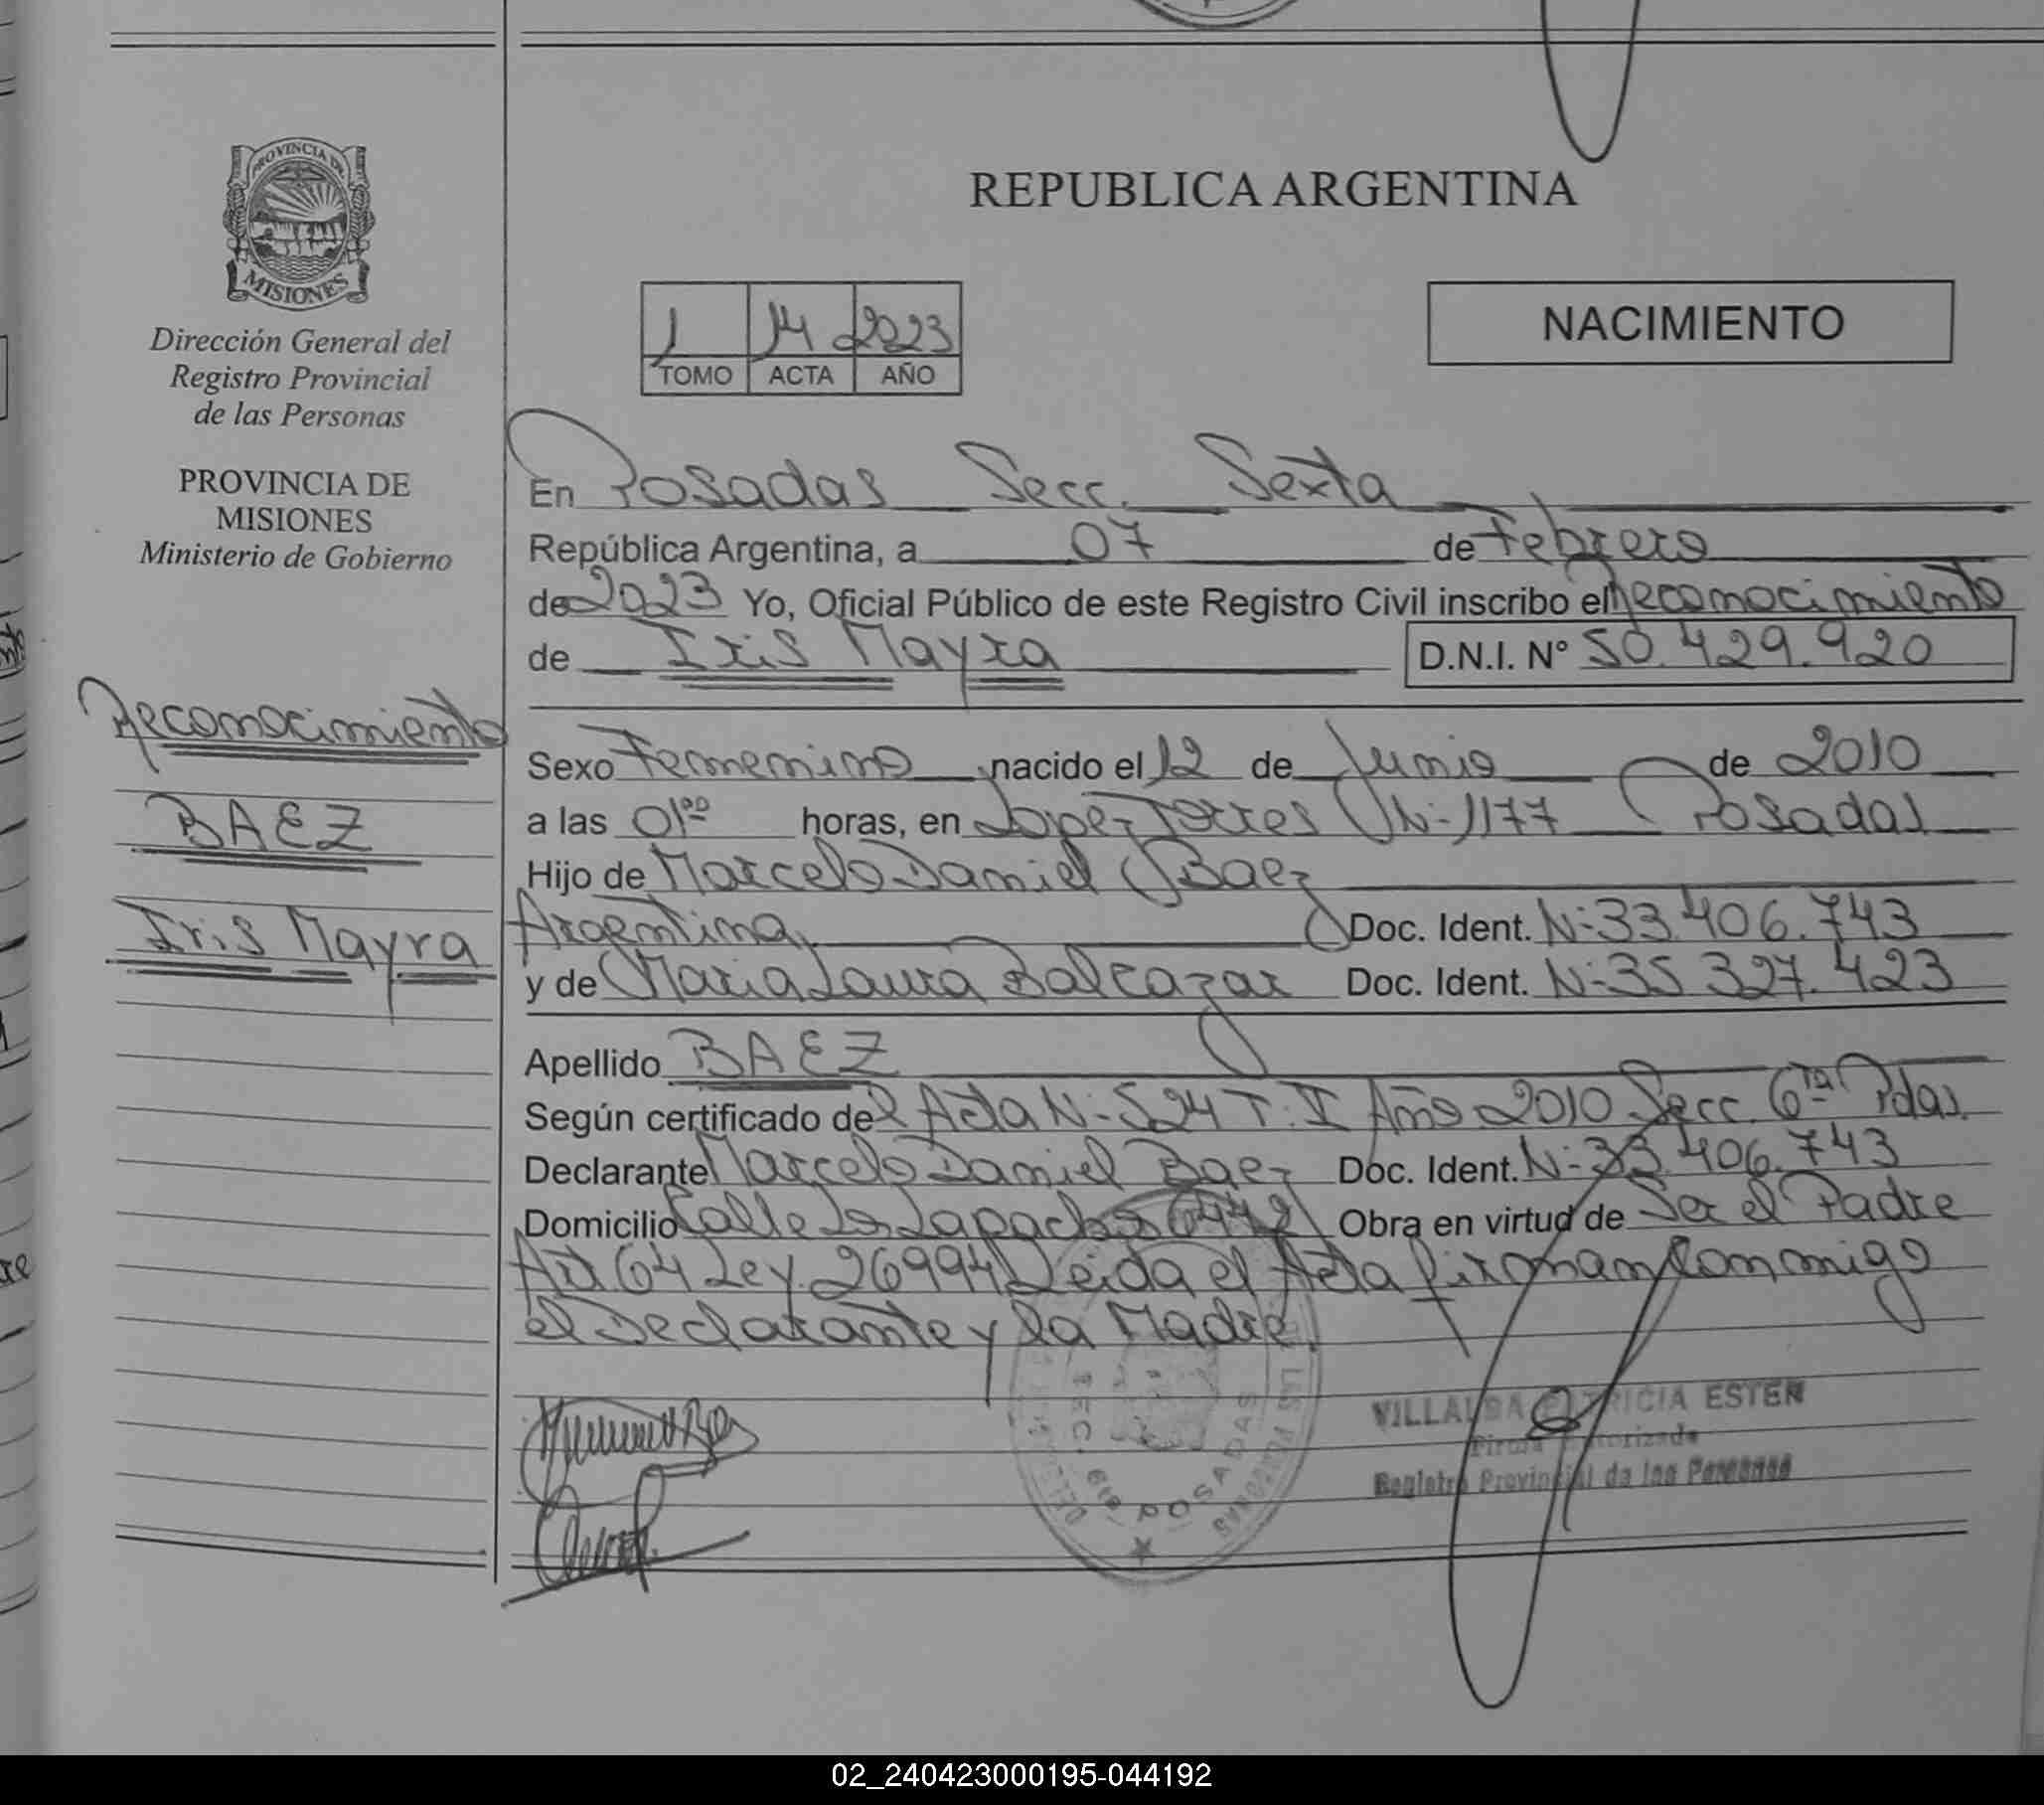 REPUBLICA ARGENTINA
PROVINCIA DE
MISIONES
Dirección General del
Registro Provincial
de las Personas
PROVINCIA DE
MISIONES
Ministerio de Gobierno
1 14 2023
TOMO ACTA AÑO
NACIMIENTO
En Posadas Secc. Sexta
República Argentina, a 07 de Febrero
de 2023 Yo, Oficial Público de este Registro Civil inscribo el Reconocimiento
de Iris Mayra D.N.I. N° 50.429.920
Reconocimiento
BAEZ
Iris Mayra
Sexo Femenino nacido el 12 de Junio de 2010
a las 0100 horas, en Lopez Torres N-1177 Posadas
Hijo de Marcelo Daniel Baez
Argentina, Doc. Ident. N-33.406.743
y de Maria Laura Balcazar Doc. Ident. N-35 327.423
Apellido BAEZ
Según certificado del Acta N-524 T. I Año 2010 Secc. 6ta Pdas.
Declarante Marcelo Daniel Baez Doc. Ident. N-33.406.743
Domicilio Calle Los Lapachos Obra en virtud de Ser el Padre
Art 64 Ley. 26994 Leida el Acta firman conmigo
el Declarante y la Madre.
VILLALBA PATRICIA ESTER
Firma Autorizada
Registro Provincial de las Personas
SECC. 6ta POSADAS
02_240423000195-044192